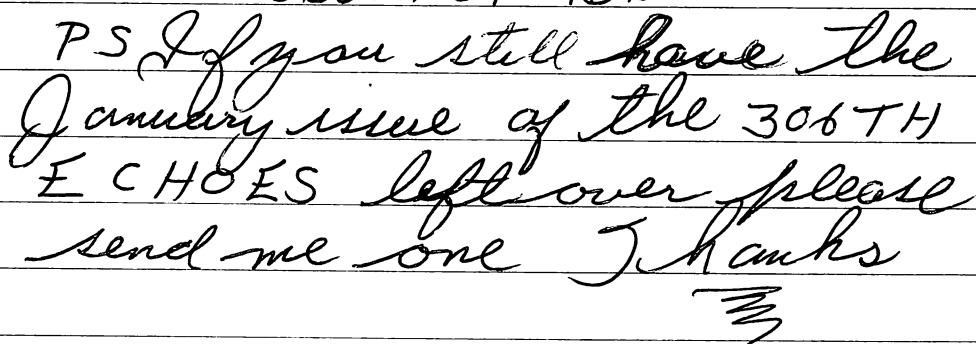 PS If you still have the
January issue of the 306TH
ECHOES left over please
send me one Thanks